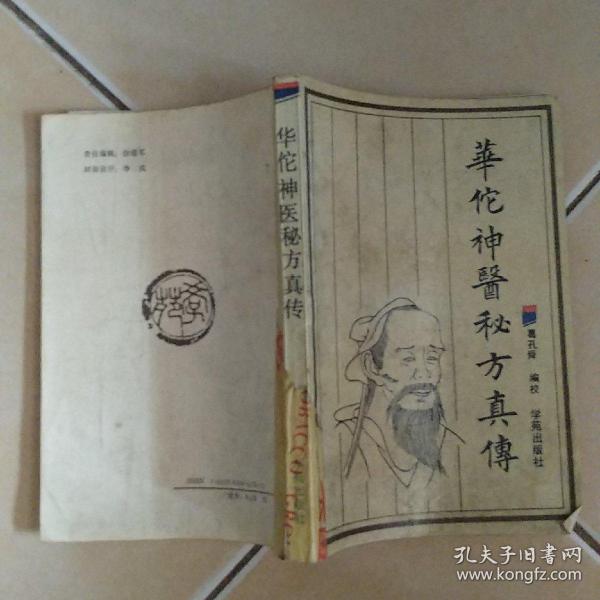 華佗神醫秘方真傳
葛孔舜 编校 学苑出版社
华佗神医秘方真传
责任编辑：
封面设计：李
学苑
ISBN
孔夫子旧书网
www.kongfz.com